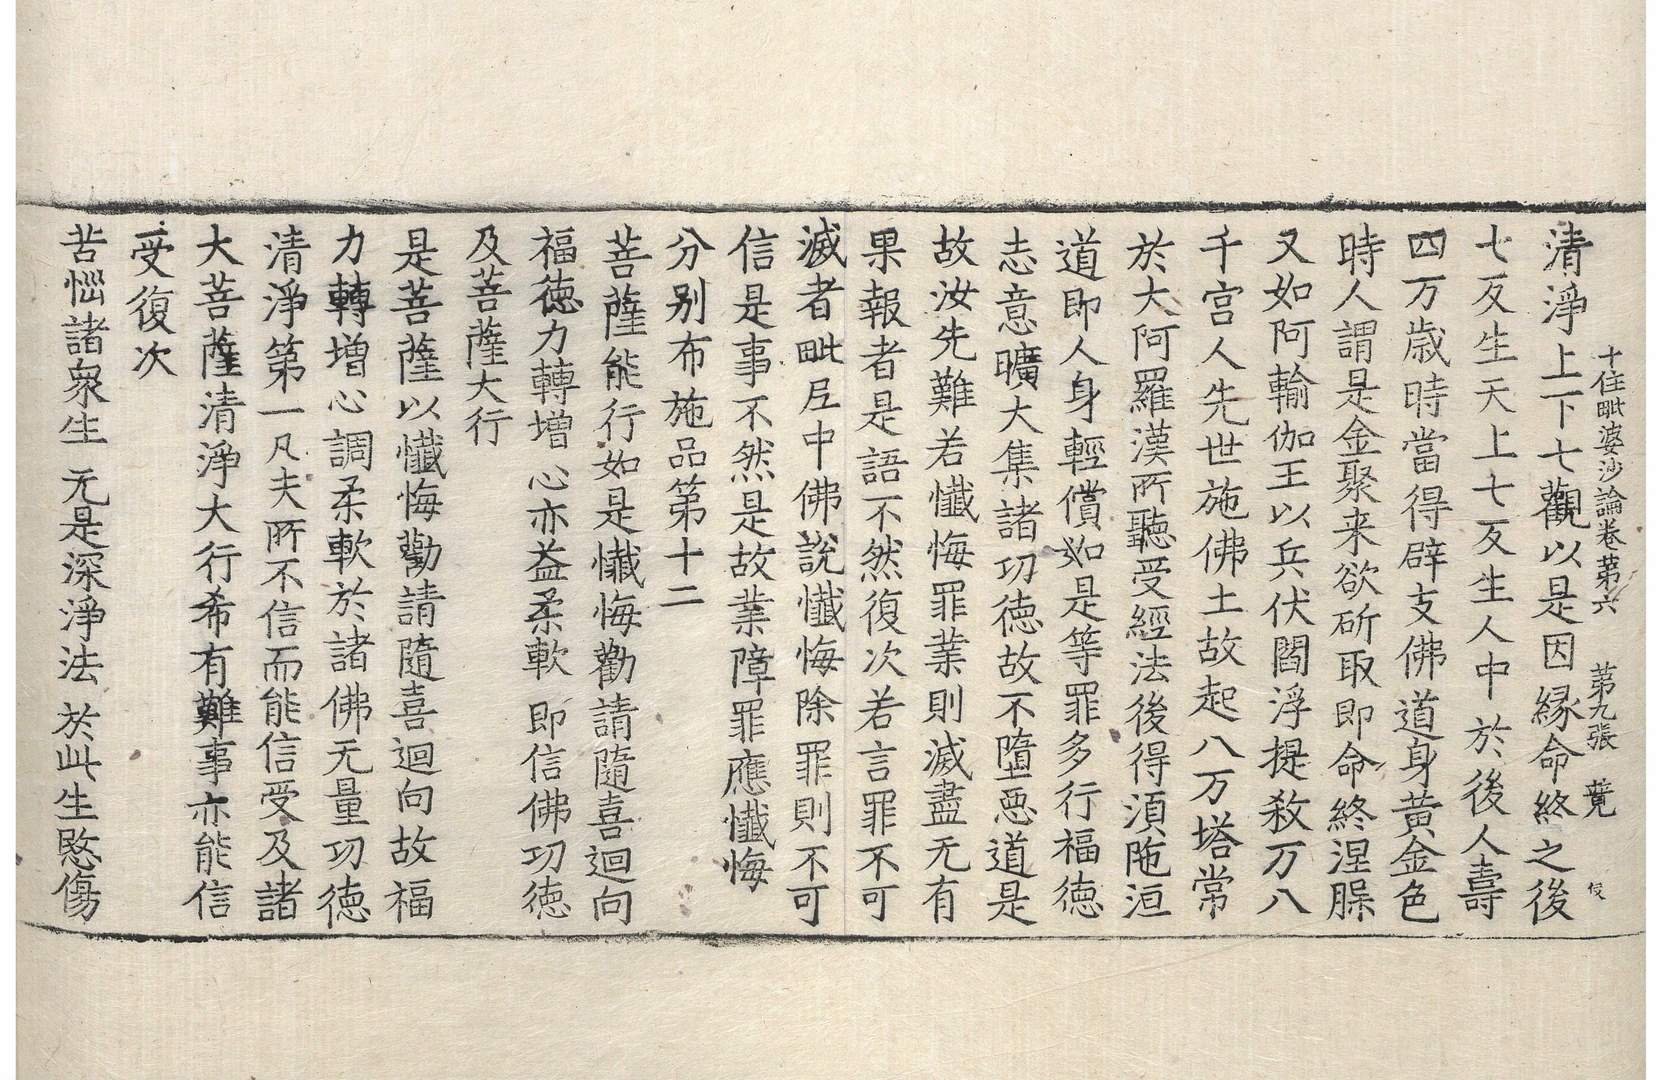 十住毗婆沙論卷第六 第九張 競
清淨上下七觀以是因縁命終之後
七反生天上七反生人中於後人壽
四万歲時當得辟支佛道身黃金色
時人謂是金聚来欲斫取即命終涅槃
又如阿輸伽王以兵伏閻浮提殺万八
千宫人先世施佛土故起八万塔常
於大阿羅漢所聽受經法後得須陁洹
道即人身輕償如是等罪多行福徳
志意曠大集諸功徳故不墮惡道是
故汝先難若懺悔罪業則滅盡无有
果報者是語不然復次若言罪不可
滅者毗尼中佛說懺悔除罪則不可
信是事不然是故業障罪應懺悔
分别布施品第十二
菩薩能行如是懺悔勸請隨喜迴向
福徳力轉增心亦益柔軟即信佛功徳
及菩薩大行
是菩薩以懺悔勸請隨喜迴向故福
力轉增心調柔軟於諸佛无量功徳
清淨第一凡夫所不信而能信受及諸
大菩薩清淨大行希有難事亦能信
受復次
苦惱諸衆生 无是深淨法 於此生愍傷